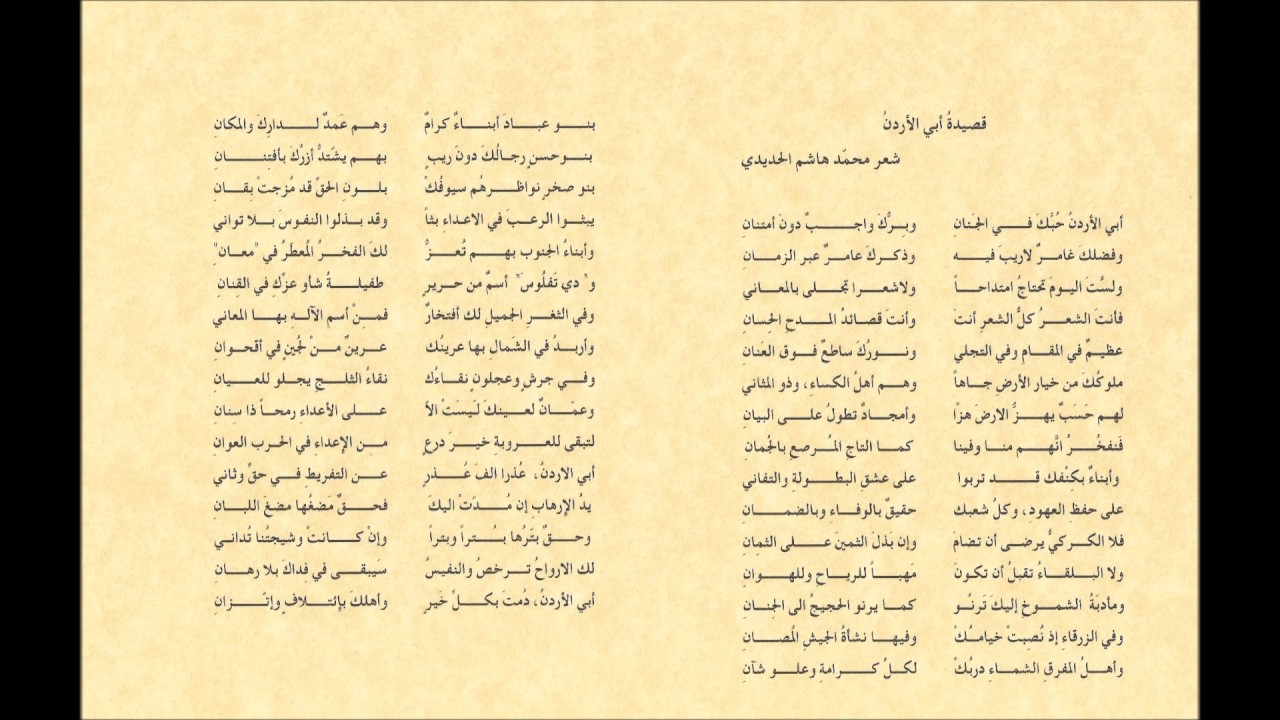 قصيدةُ أبي الأردنُ
شعر محمّد هاشم الحديدي
أبي الأردنُ حُبَّكَ فـي الجَنانِ وبـرُّكَ واجـبٌ دونَ أمتنانِ
وفضلكَ غامـرٌ لاريبَ فيـه وذكـركَ عامـرٌ عبر الزمـانِ
ولستَ اليـومَ تحتاجُ امتداحـاً ولاشعـرا تجـلى بالمعـاني
فأنتَ الشعـرُ كلُّ الشعرِ أنتَ وأنتَ قصائدُ المـدحِ الحِسانِ
عظيـمٌ في المقـام وفي التجلي ونـورُكَ ساطعٌ فـوق العَنانِ
ملوكُكَ من خيار الأرضِ جـاهاً وهـم أهلُ الكساءِ، وذو المثاني
لهـم حَسَبٌ يهـزُّ الارضَ هزْا وأمجـادٌ تطولُ علـى البيانِ
فَنفخُـرُ انَّهـم منـا وفينا كمـا التاجِ المُـرصعِ بالجُمانِ
وأبناءٌ بكنْفك قـد تربوا على عشقِ البطـولةِ والتفاني
على حفظِ العهودِ، وكلُ شعبك حقيقٌ بالوفـاءِ وبالضمـانِ
فلا الكـركيُّ يرضى أن تضامَ وإن بَذلَ الثمينَ علـى الثمانِ
ولا البـلقـاءُ تقبلُ أن تكـونَ مَهبـاً للريـاحِ وللهـوانِ
ومأدبَةُ الشمـوخِ إليكَ تَرنُـو كمـا يرنو الحجيجُ الى الجِنـانِ
وفي الزرقاءِ إذ نُصِبتْ خيامـكْ وفيهـا نشأةُ الجيشِ المُصـانِ
وأهـلُ المفرقِ الشمـاءِ دربُكْ لكلُ كـرامةٍ وعلـو شآنِ
بنـو عبـادَ أبنـاءٌ كرامٌ وهـم عَمدٌ لـداركَ والمكانِ
بنـوحسنٍ رجـالُكَ دونَ ريبٍ بهـم يشّتدُّ أزرُكَ بأفتِنـانِ
بنو صخرٍ نواظـرهُم سيوفُكْ بلـونِ الحقِّ قد مُزجتْ بِقـانِ
يبثـوا الرعـبَ في الاعداءِ بثاً وقد بـذلوا النفوسَ بـلا تواني
وأبناءُ الجنوبِ بهـم تُعـزُّ لكَ الفخـرُ المُعطرُ في "معـان"
و"دي تَفلُوسَ" أسمٌ من حـريرٍ طفيلـةُ شأو عزِّك في القِنانِ
وفي الثغـرِ الجميلِ لك أفتخارٌ فمـنْ أسم الآلـهِ بهـا المعاني
وأربـدُ في الشَمالِ بها عرينُك عـرينٌ مـنْ لجُينٍ في أقحـوانِ
وفـي جرشٍ وعجلونٍ نقـاءُك نقاءُ الثلـجِ يجـلو للعـيانِ
وعمّـانٌ لعـينكَ لـيَستْ الاَّ علـى الأعداءِ رمحـاً ذا سِنانِ
لتبقى للعـروبةِ خيـرَ درعٍ مـن الإعداءِ في الحـرب العوان
أبي الاردنُ، عُذرا الفَ عُـذرٍ عـن التفريطِ فـي حقٍّ وثاني
يدُ الإرهابِ إن مُـدّتْ اليكَ فحـقٌ مَضغُها مضغَ اللبـانِ
وحـقٌ بَتْرُها بـتراً وبتراً وإنْ كـانتْ وشيجتُنا تُدانـي
لك الارواحُ تـرخصُ والنفيسُ سَيبقـى في فِداكَ بلا رهـانِ
أبي الأردنُ، دُمتَ بكـلُ خَيرٍ وأهلكَ بإئتـلافٍ وإتـزانِ